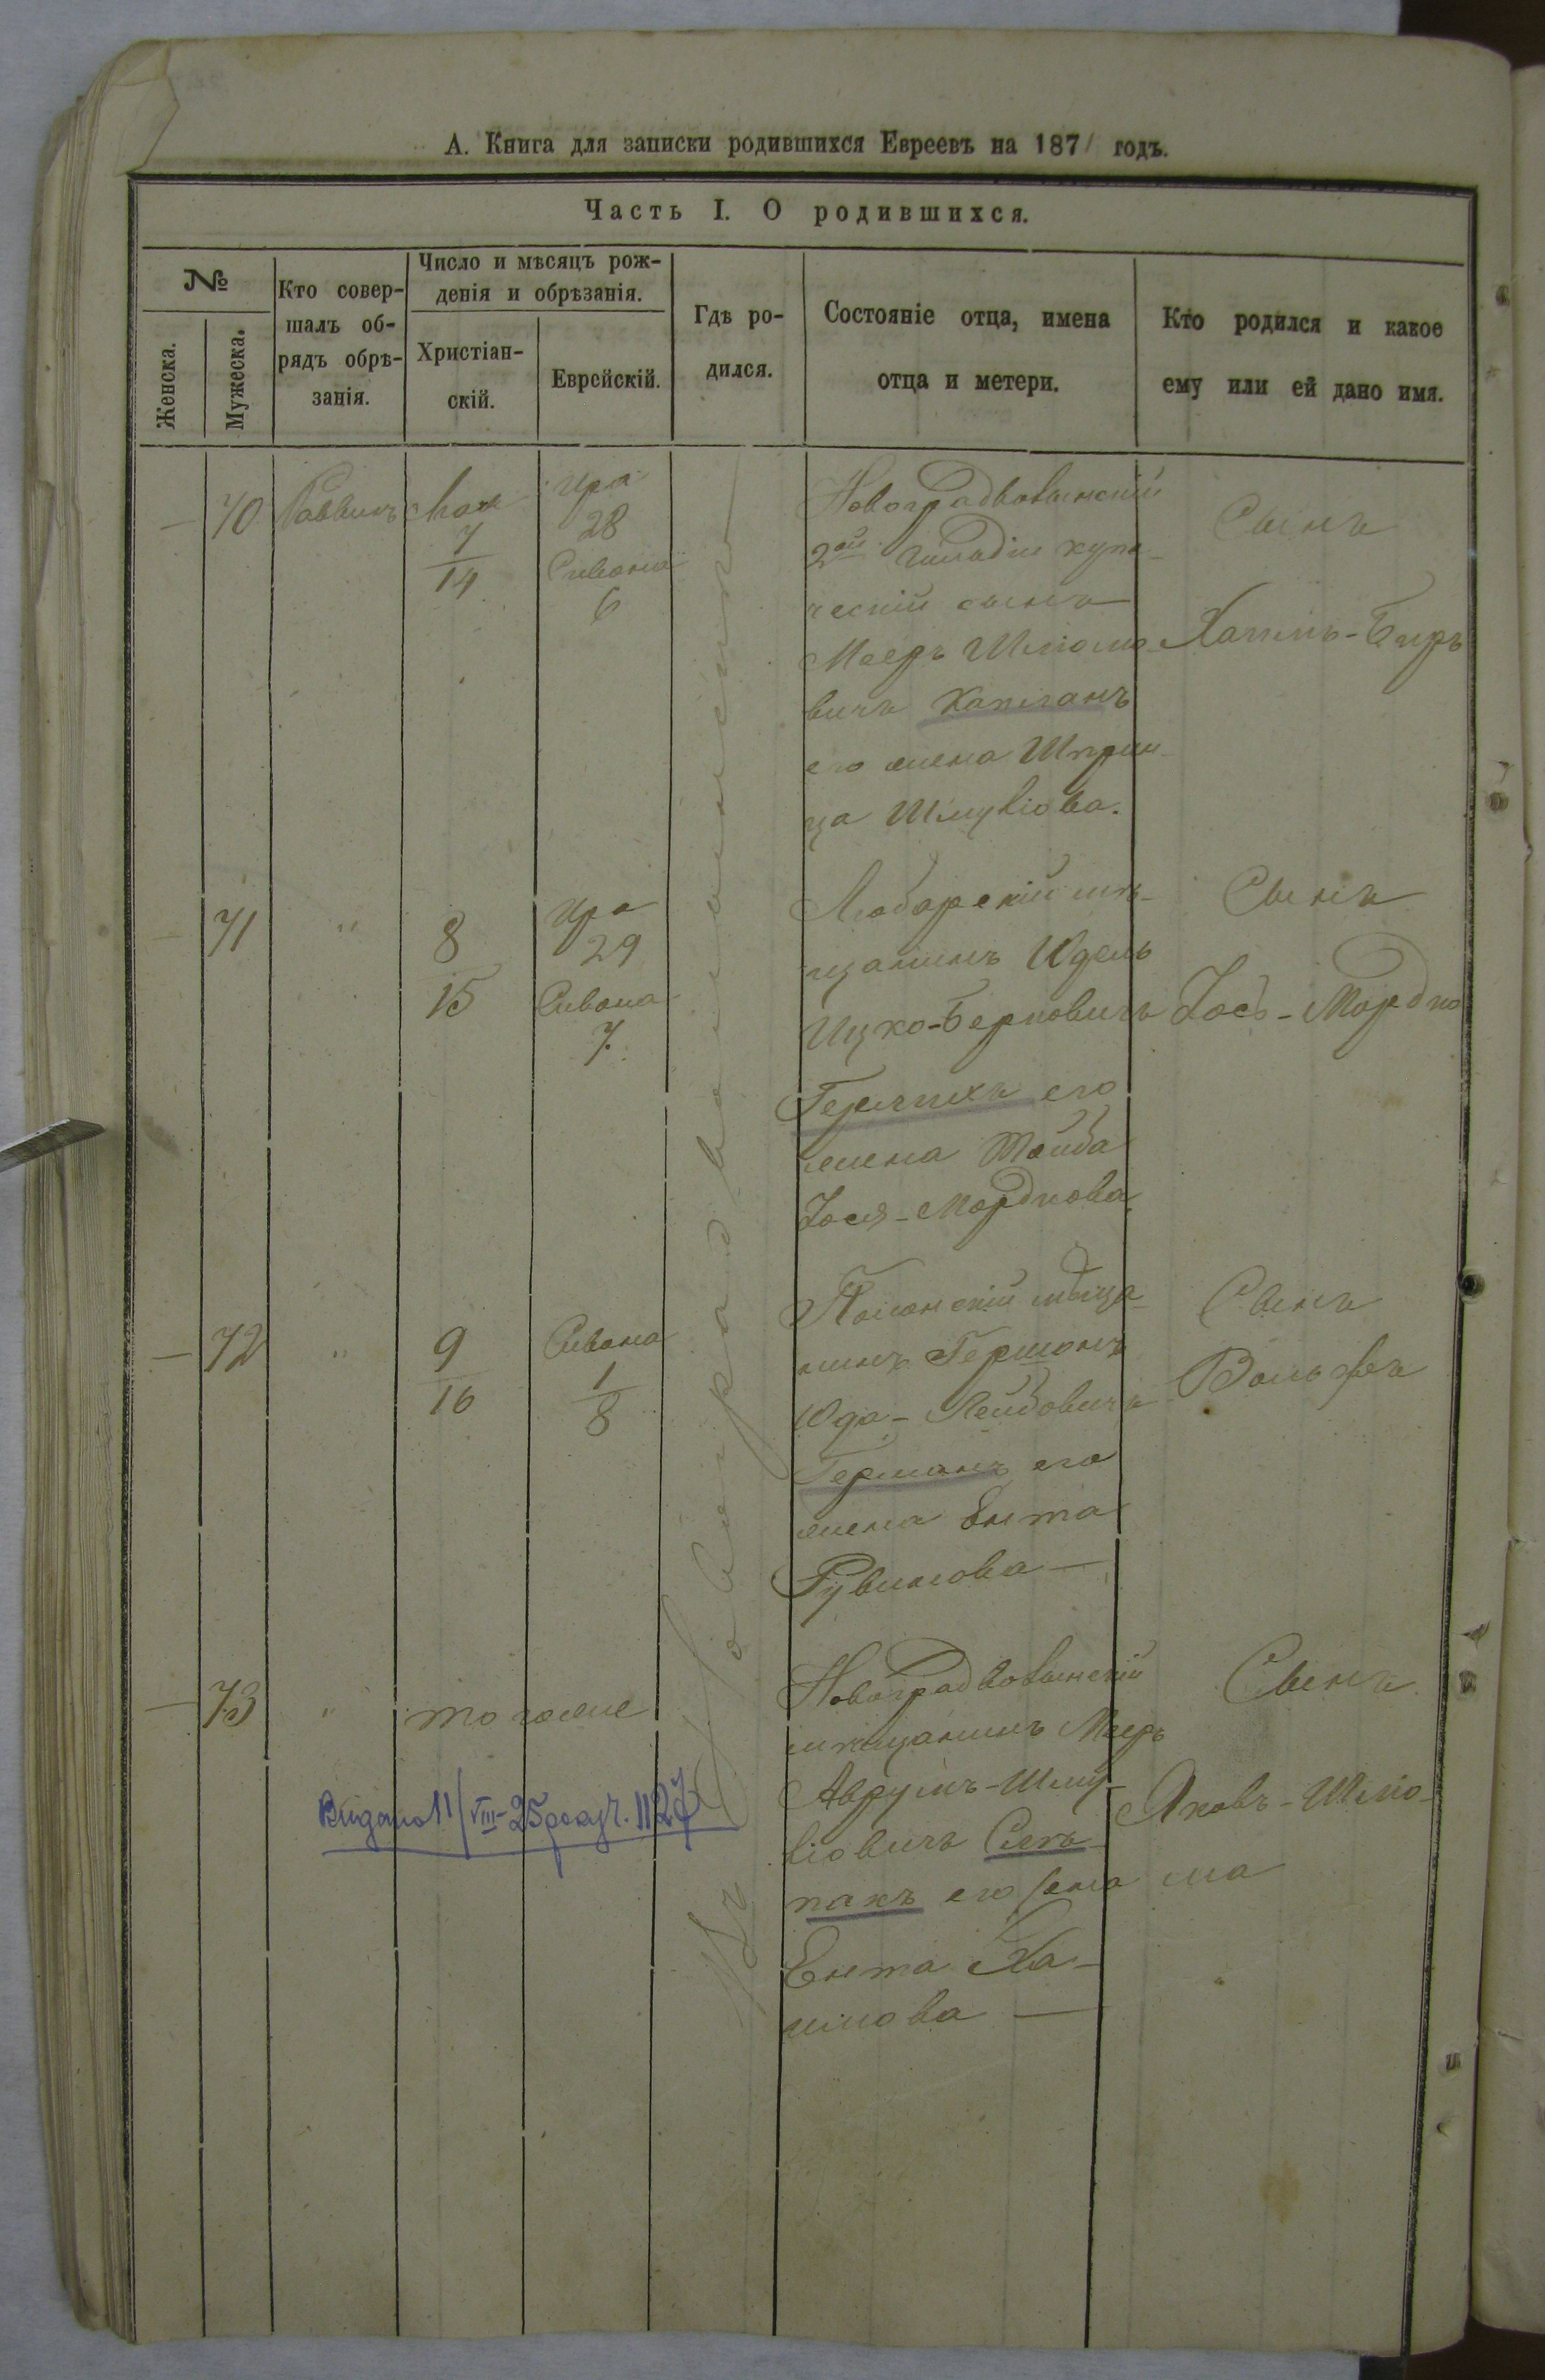 А. Книга для записки родившихся Евреевъ на 1871 годъ.
Часть I. О родившихся.
№
Женска.
Мужеска.
Кто совер-
шалъ об-
рядъ обрѣ-
занія.
Число и мѣсяцъ рож-
денія и обрѣзанія.
Христіан-
скій.
Еврейскій.
Гдѣ ро-
дился.
Состояніе отца, имена
отца и метери.
Кто родился и какое
ему или ей дано имя.
— 70
Раввинъ
Мая
7
14
Ира
28
Сивана
6
Новоградволынскій
2ой гильдіи купе-
ческій сынъ
Маеръ Шліомо-
вичъ Капланъ
его жена Шприн-
ца Шмуліова.
Сынъ
Хаимъ-Беръ
— 71
"
8
15
Ира
29
Сивана
7.
Любарскій мѣ-
щанинъ Юдель
Ицко-Берковичъ
его
жена Тойба
Іося-Мордкова.
Сынъ
Іось-Мордко
— 72
"
9
16
Сивана
1
8
Полонскій мѣща-
нинъ Гершонъ
Юда-Лейбовичъ
Германъ его
жена Ента
Рувинова —
Сынъ
Вольфъ
— 73
"
тогоже
Новоградволынскій
мѣщанинъ Мееръ
Аврумъ-Шму-
ліовичъ Слѣ-
пакъ его жена
Ента Ха-
имова —
Сынъ
Яковъ-Шліо-
ма
Видано 11/VIII-25
Въ Новоградволынскѣ